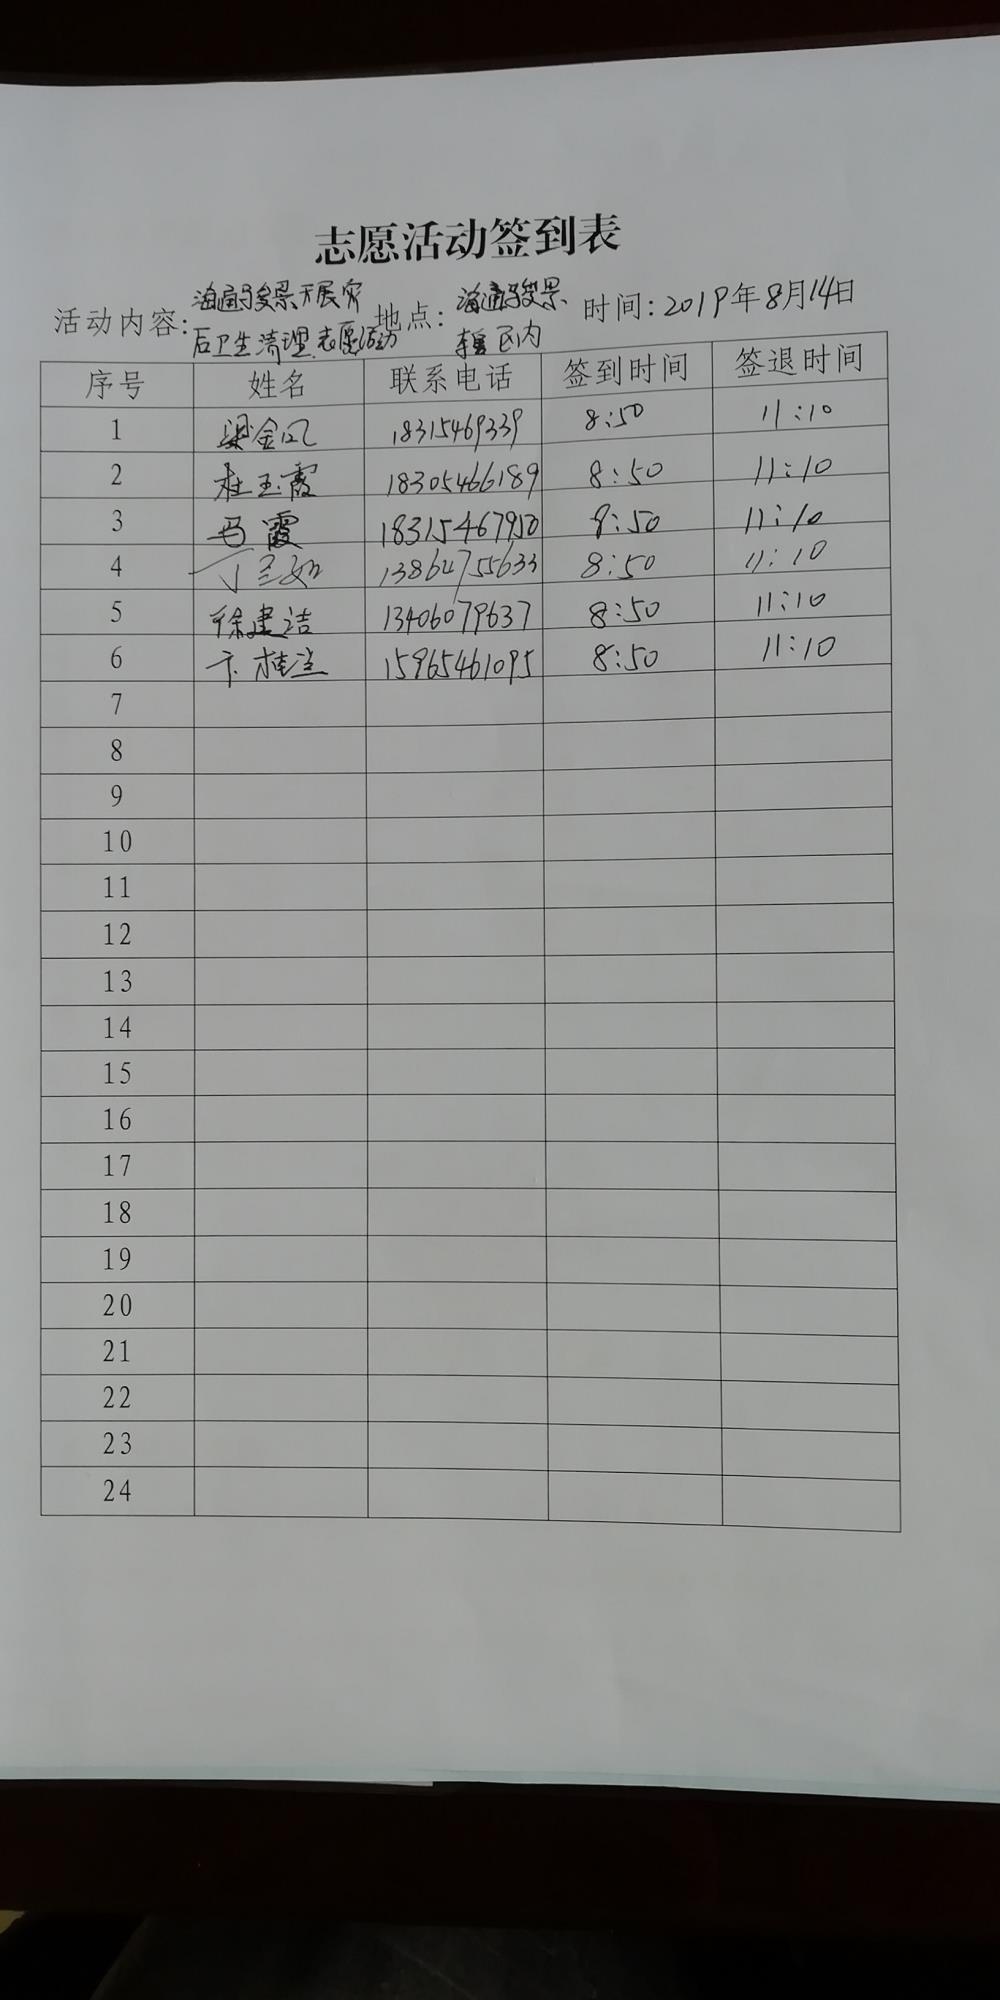 志愿活动签到表
活动内容: 海通骏景开展灾 地点: 海通骏景 时间: 2019年8月14日
后卫生清理志愿活动 辖区内
序号 姓名 联系电话 签到时间 签退时间
1 梁金凤 18315469339 8:50 11:10
2 杜玉霞 18305466189 8:50 11:10
3 马霞 18315467950 8:50 11:10
4 丁兰如 13864755633 8:50 11:10
5 徐建洁 13406079637 8:50 11:10
6 卞桂兰 15965461095 8:50 11:10
7
8
9
10
11
12
13
14
15
16
17
18
19
20
21
22
23
24